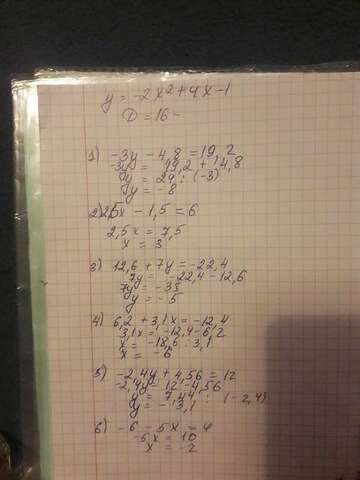 y = -2x² + 4x - 1
D = 16 -
1) -3y - 4,8 = 19,2
-3y = 19,2 + 4,8
y = 24 : (-3)
y = -8
2) 2,5x - 1,5 = 6
2,5x = 7,5
x = 3
3) 12,6 + 7y = -22,4
7y = -22,4 - 12,6
7y = -35
y = -5
4) 6,2 + 3,1x = -12,4
3,1x = -12,4 - 6,2
x = -18,6 : 3,1
x = -6
5) -2,4y + 4,56 = 12
-2,4y = 12 - 4,56
y = 7,44 : (-2,4)
y = -3,1
6) -6 - 5x = 4
-5x = 10
x = -2